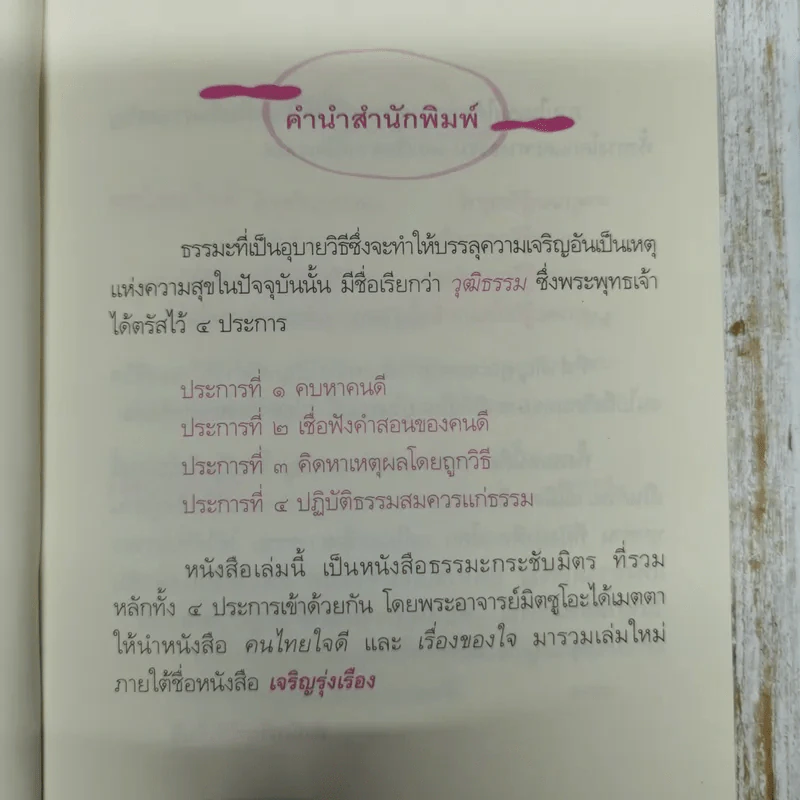 คำนำสำนักพิมพ์
ธรรมะที่เป็นอุบายวิธีซึ่งจะทำให้บรรลุความเจริญอันเป็นเหตุ
แห่งความสุขในปัจจุบันนั้น มีชื่อเรียกว่า วุฒิธรรม ซึ่งพระพุทธเจ้า
ได้ตรัสไว้ ๔ ประการ
ประการที่ ๑ คบหาคนดี
ประการที่ ๒ เชื่อฟังคำสอนของคนดี
ประการที่ ๓ คิดหาเหตุผลโดยถูกวิธี
ประการที่ ๔ ปฏิบัติธรรมสมควรแก่ธรรม
หนังสือเล่มนี้ เป็นหนังสือธรรมะกระชับมิตร ที่รวม
หลักทั้ง ๔ ประการเข้าด้วยกัน โดยพระอาจารย์มิตซูโอะได้เมตตา
ให้นำหนังสือ คนไทยใจดี และ เรื่องของใจ มารวมเล่มใหม่
ภายใต้ชื่อหนังสือ เจริญรุ่งเรือง